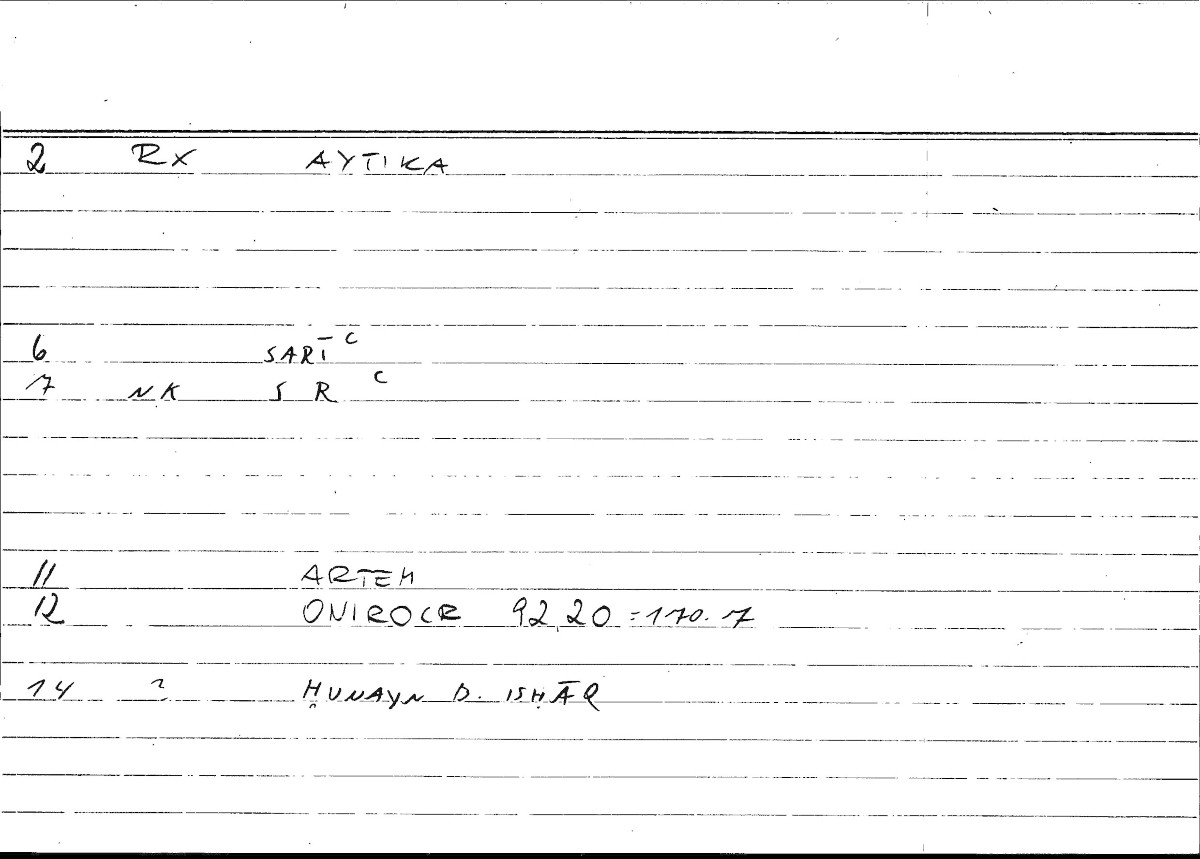 2 RX AYTIKA
6 SARĪ c
7 NK S R c
11 ARTEM
12 ONIROCR 92,20 = 170.7
14 ? ḤUNAYN B. ISḤĀQ